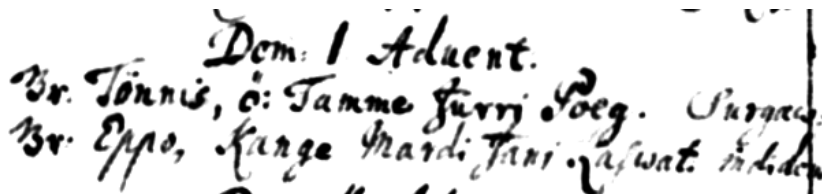 Dom: 1 Aduent.
Br. Tönnis, ö: Tamme Jurrj Poeg.
Br. Eppo, Kange Mardi Jani Kaswat.